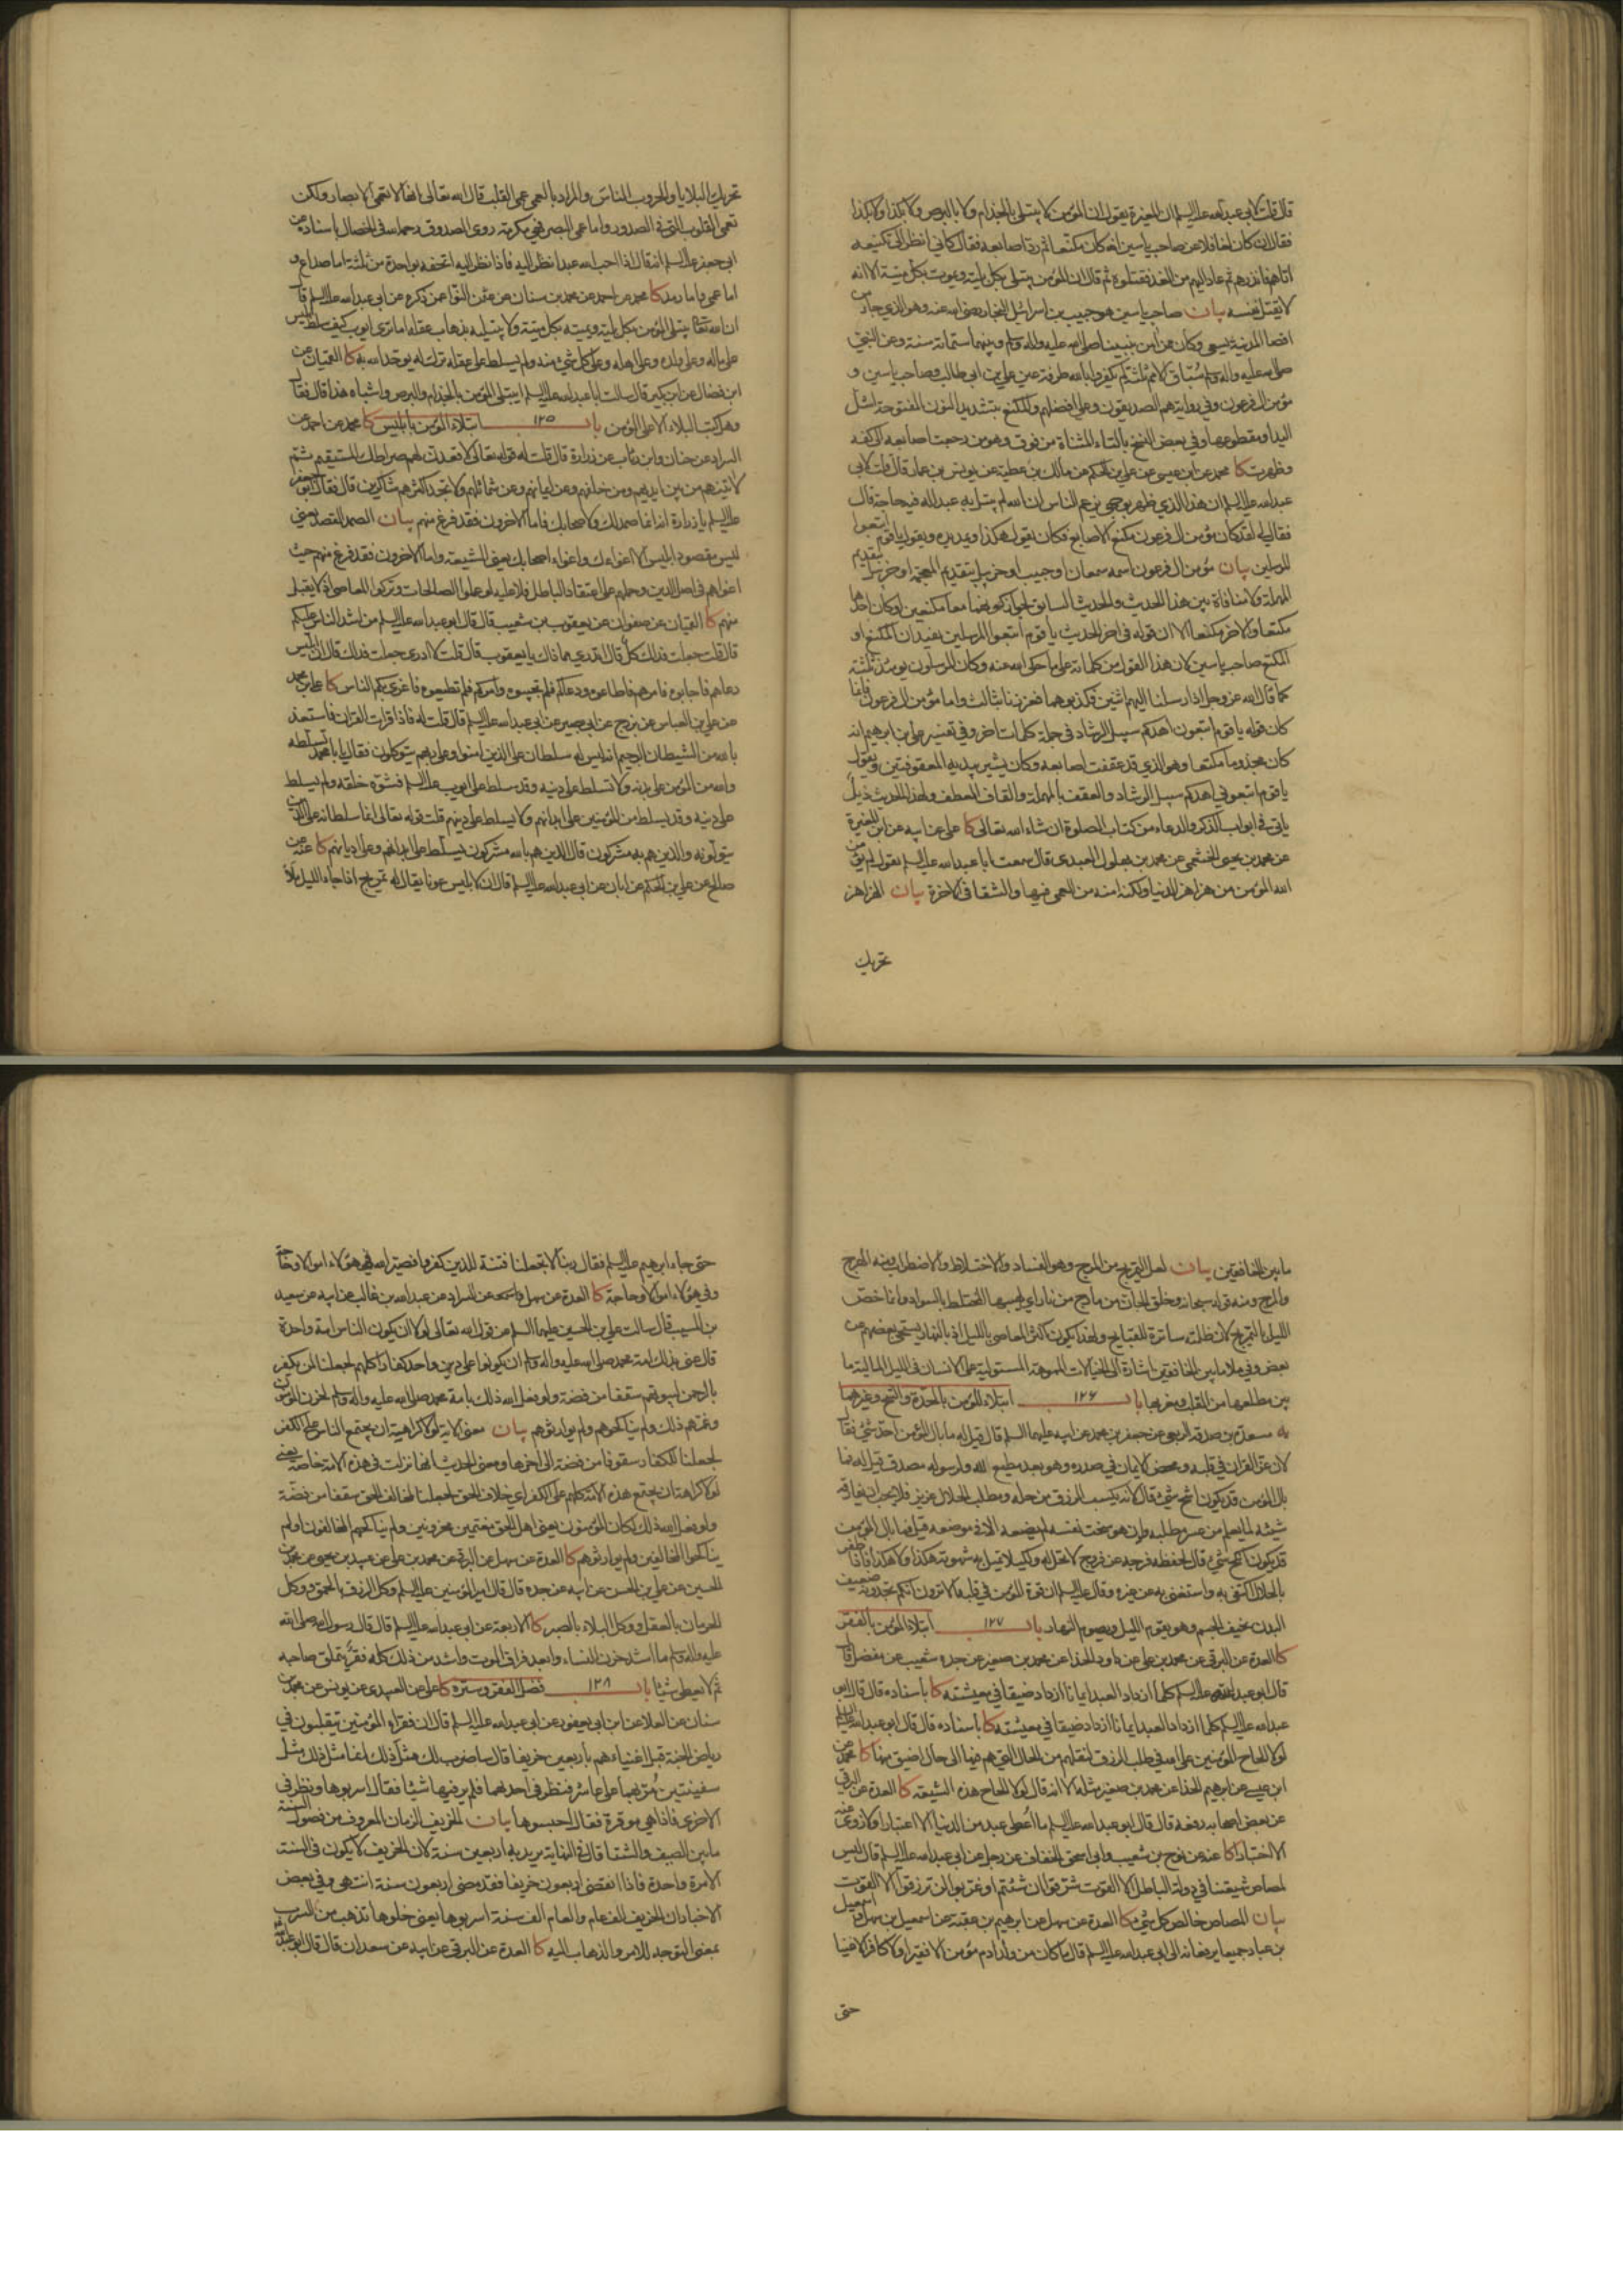 قال قلت لابي عبدالله عليه السلم ان المغيرة يقول ان المؤمن لا يبتلى بالجذام ولا بالبرص ولا بكذا ولا بكذا
فقال ان كان لغافلا عن صاحب ياسين انه كان مكنعا ثم رد اصابعه فقال كاني انظر الى تكنيعه
اتاهم فانذرهم ثم عاد اليهم من الغد فقتلوه ثم قال ان المؤمن يبتلى بكل بلية ويموت بكل ميتة الا انه
لا يقتل نفسه بيان صاحب ياسين هو حبيب بن اسرائيل النجار رضي الله عنه وهو الذي جاء من
اقصا المدينة يسعى وكان ممن امن بنبينا صلى الله عليه واله وسلم وبينهما ستمائة سنة وعن النبي
صلى الله عليه واله وسلم سباق الامم ثلثة لم يكفروا بالله طرفة عين علي بن ابي طالب وصاحب ياسين و
مؤمن ال فرعون وفي رواية هم الصديقون وعلي افضلهم والمكنع بتشديد النون المفتوحة اشل
اليد او مقطوعها وفي بعض النسخ بالتاء المثناة من فوق وهو من رجعت اصابعه الى كفه
وظهرت كا محمد عن ابن عيسى عن علي بن الحكم عن مالك بن عطية عن يونس بن عمار قال قلت لابي
عبدالله عليه السلم ان هذا الذي ظهر بوجهي يزعم الناس ان الله لم يبتل به عبدا له فيه حاجة قال
فقال لي لقد كان مؤمن ال فرعون مكنع الاصابع فكان يقول هكذا ويمد يده ويقول يا قوم اتبعوا
المرسلين بيان مؤمن ال فرعون اسمه سمعان او حبيب او خربيل بتقديم المعجمة او حزبيل بتقديم
المهملة ولا منافاة بين هذا الحديث والحديث السابق لجواز كونهما معا مكنعين او كان احدهما
مكنعا والاخر مكتعا الا ان قوله في اخر الحديث يا قوم اتبعوا المرسلين يفيد ان المكنع او
المكتع صاحب ياسين لان هذا القول من كلماته على ما حكى الله عنه وكان المرسلون يومئذ ثلثة
كما قال الله عز وجل اذ ارسلنا اليهم اثنين فكذبوهما فعززنا بثالث واما مؤمن ال فرعون فانما
كان قوله يا قوم اتبعون اهدكم سبيل الرشاد في جملة كلمات اخر وفي تفسير علي بن ابرهيم انه
كان مجذوما مكنعا وهو الذي قد عقفت اصابعه وكان يشير بيديه المعقوفتين ويقول
يا قوم اتبعوني اهدكم سبيل الرشاد والعقف بالمهملة والقاف العطف ولهذا الحديث ذيل
ياتي في ابواب الذكر والدعاء من كتاب الصلوة ان شاء الله تعالى كا علي عن ابيه عن ابن المغيرة
عن محمد بن يحيى الخثعمي عن محمد بن بهلول العبدي قال سمعت ابا عبدالله عليه السلم يقول لم يؤمن
الله المؤمن من هزاهز الدنيا ولكنه امنه من العمى فيها والشقا في الاخرة بيان الهزاهز
تحريك
تحريك البلايا والحروب للناس والمراد بالعمى عمى القلب قال الله تعالى انها لا تعمى الابصار ولكن
تعمى القلوب التي في الصدور واما عمى البصر فهي مكرمة روى الصدوق رحمه الله في الخصال باسناده عن
ابي جعفر عليه السلم انه قال اذا احب الله عبدا نظر اليه فاذا نظر اليه اتحفه بواحدة من ثلثة اما صداع و
اما حمى واما رمد كا محمد بن احمد عن محمد بن سنان عن عثمن النوا عن ذكره عن ابي عبدالله عليه السلم قال
ان الله تعالى يبتلي المؤمن بكل بلية ويميته بكل ميتة ولا يبتليه بذهاب عقله اما ترى ايوب كيف سلط ابليس
على ماله وعلى ولده وعلى اهله وعلى كل شيء منه ولم يسلط على عقله ترك له يوحد الله به كا القميان عن
ابن فضال عن ابن بكير قال سالت ابا عبدالله عليه السلم ايبتلى المؤمن بالجذام والبرص واشباه هذا قال فقال
وهل كتب البلاء الا على المؤمن باب ١٢٥ ابتلاء المؤمن بابليس كا محمد عن احمد عن
السراد عن حنان وابن رئاب عن زرارة قال قلت له قوله تعالى لاقعدن لهم صراطك المستقيم ثم
لاتينهم من بين ايديهم ومن خلفهم وعن ايمانهم وعن شمائلهم ولا تجد اكثرهم شاكرين قال فقال ابو جعفر
عليه السلم يا زرارة انه انما صمد لك ولاصحابك فاما الاخرون فقد فرغ منهم بيان الصمد القصد يعني
ليس مقصود ابليس الا اغواءك واغواء اصحابك يعني الشيعة واما الاخرون فقد فرغ منهم حيث
اغواهم في اصل الدين وحملهم على اعتقاد الباطل فلا عليه لو عملوا الصالحات وتركوا المعاصي اذ لا يقبل
منهم كا القميان عن صفوان عن يعقوب بن شعيب قال قال ابو عبدالله عليه السلم من اشد الناس عليكم
قال قلت جعلت فداك كل قال اتدري مما ذاك يا يعقوب قال قلت لا ادري جعلت فداك قال ان ابليس
دعاهم فاجابوه وامرهم فاطاعوه ودعاكم فلم تجيبوه وامركم فلم تطيعوه فاغرى بكم الناس كا علي بن محمد
عن علي بن العباس عن بزرج عن ابي بصير عن ابي عبدالله عليه السلم قال قلت له فاذا قرات القران فاستعذ
بالله من الشيطان الرجيم انه ليس له سلطان على الذين امنوا وعلى ربهم يتوكلون فقال يا با محمد تسلطه
والله من المؤمن على بدنه ولا تسلط على دينه وقد سلط على ايوب عليه السلم فشوه خلقه ولم يسلط
على دينه وقد يسلط من المؤمنين على ابدانهم ولا يسلط على دينهم قلت قوله تعالى انما سلطانه على الذين
يتولونه والذين هم به مشركون قال الذين هم بالله مشركون يسلط على ابدانهم وعلى اديانهم كا عنه عن
صالح عن علي بن الحكم عن ابان عن ابي عبدالله عليه السلم قال ان لابليس عونا يقال له تمريح اذا جاء الليل ملأ
ما بين الخافقين بيان لعل التمريج من المرج وهو الفساد والاختلاط والاضطراب ومنه الهرج
والمرج ومنه قوله سبحانه وخلق الجان من مارج من نار اي لهيبها المختلط بالسواد وانما خص
الليل بالتمريج لان ظلمته ساترة للقبايح ولهذا يكون اكثر المعاصي بالليل اذ بالنهار يستحيي بعضهم من
بعض وفي ملا ما بين الخافقين اشارة الى الخيالات المموهة المستولية على الانسان في الليل المالية ما
بين مطلعها من القلب ومغربها باب ١٢۶ ابتلاء المؤمن بالحدة والشح وغيرهما
يه مسعدة بن صدقة الربعي عن جعفر بن محمد عن ابيه عليهما السلم قال قيل له ما بال المؤمن احد شيء فقال
لان عز القران في قلبه ومحض الايمان في صدره وهو بعد مطيع لله ولرسوله مصدق قيل له فما
بال المؤمن قد يكون اشح شيء قال لانه يكسب الرزق من حله ومطلب الحلال عزيز فلا يحب ان يفارقه
شيئه لما يعلم من عسر مطلبه وان هو سخت نفسه لم يضعه الا في موضعه قيل فما بال المؤمن
قد يكون انكح شيء قال لحفظه فرجه عن فروج لا تحل له ولكيلا تميل به شهوته هكذا ولا هكذا فاذا ظفر
بالحلال اكتفى به واستغنى به عن غيره وقال عليه السلم ان قوة المؤمن في قلبه الا ترون انكم تجدونه ضعيف
البدن نحيف الجسم وهو يقوم الليل ويصوم النهار باب ١٢٧ ابتلاء المؤمن بالفقر
كا العدة عن البرقي عن محمد بن علي عن داود الحذا عن محمد بن صغير عن جده شعيب عن مفضل قال
قال ابو عبدالله عليه السلم كلما ازداد العبد ايمانا ازداد ضيقا في معيشته كا باسناده قال قال ابو
عبدالله عليه السلم كلما ازداد العبد ايمانا ازداد ضيقا في معيشته كا باسناده قال قال ابو عبدالله عليه السلم
لولا الحاح المؤمنين على الله في طلب الرزق لنقلهم من الحال التي هم فيها الى حال اضيق منها كا محمد عن
ابن عيسى عن ابرهيم الحذا عن محمد بن صغير مثله الا انه قال لولا الحاح هذه الشيعة كا العدة عن البرقي
عن بعض اصحابه رفعه قال قال ابو عبدالله عليه السلم ما اعطي عبد من الدنيا الا اعتبارا ولا زوي عنه
الا اختبارا كا عنه عن نوح بن شعيب وابي اسحق الخفاف عن رجل عن ابي عبدالله عليه السلم قال ليس
لمصاص شيعتنا في دولة الباطل الا القوت شرقوا ان شئتم او غربوا لن ترزقوا الا القوت
بيان المصاص خالص كل شيء كا العدة عن سهل عن ابرهيم بن عقبة عن اسمعيل بن سهل واسمعيل
بن عباد جميعا يرفعانه الى ابي عبدالله عليه السلم قال ما كان من ولد ادم مؤمن الا فقيرا ولا كافر الا غنيا
حتى
حتى جاء ابرهيم عليه السلم فقال ربنا لا تجعلنا فتنة للذين كفروا فصير الله في هؤلاء اموالا وحاجة
وفي هؤلاء اموالا وحاجة كا العدة عن سهل عن السراد عن عبدالله بن غالب عن ابيه عن سعيد
بن المسيب قال سالت علي بن الحسين عليهما السلم عن قول الله تعالى لولا ان يكون الناس امة واحدة
قال عنى بذلك امة محمد صلى الله عليه واله وسلم ان يكونوا على دين واحد كفارا كلهم لجعلنا لمن يكفر
بالرحمن لبيوتهم سقفا من فضة ولو فعل الله ذلك بامة محمد صلى الله عليه واله وسلم لحزن المؤمنون
وغمهم ذلك ولم يناكحوهم ولم يوارثوهم بيان معنى الاية لولا كراهية ان يجتمع الناس على الكفر
لجعلنا للكفار سقوفا من فضة الى اخرها ومعنى الحديث انها نزلت في هذه الامة خاصة يعني
لولا كراهة ان يجتمع هذه الامة كلهم على الكفر اي خلاف الحق لجعلنا لمخالف الحق سقفا من فضة
ولو فعل الله ذلك لكان المؤمنون يعني اهل الحق مغتمين محزونين ولم يناكحهم المخالفون او لم
يناكحوا المخالفين ولم يوارثوهم كا العدة عن سهل عن البرقي عن محمد بن علي عن عبيد بن يحيى عن محمد بن
الحسين عن علي بن الحسين عن ابيه عن جده قال قال امير المؤمنين عليه السلم وكل الرزق بالحمق ووكل
الحرمان بالعقل ووكل البلاء بالصبر كا الاربعة عن ابي عبدالله عليه السلم قال قال رسول الله صلى الله
عليه واله وسلم ما اشد حزن النساء وابعد فراق الموت واشد من ذلك كله فقر يتملق صاحبه
ثم لا يعطى شيئا باب ١٢٨ فضل الفقر وستره كا علي عن العبيدي عن يونس عن محمد بن
سنان عن العلا عن ابن ابي يعفور عن ابي عبدالله عليه السلم قال ان فقراء المؤمنين يتقلبون في
رياض الجنة قبل اغنياءهم باربعين خريفا قال ساضرب لك مثل ذلك انما مثل ذلك مثل
سفينتين مر بهما على عاشر فنظر في احدهما فلم ير فيها شيئا فقال اسربوها ونظر في
الاخرى فاذا هي موقرة فقال احبسوها بيان الخريف الزمان المعروف من فصول السنة
ما بين الصيف والشتا قال في النهاية يريد به اربعين سنة لان الخريف لا يكون في السنة
الا مرة واحدة فاذا انقضى اربعون خريفا فقد مضى اربعون سنة انتهى وفي بعض
الاخبار ان الخريف الف عام والعام الف سنة اسربوها يعني خلوها تذهب من السرب
بمعنى التوجه للامر والذهاب اليه كا العدة عن البرقي عن ابيه عن سعدان قال قال ابو عبدالله